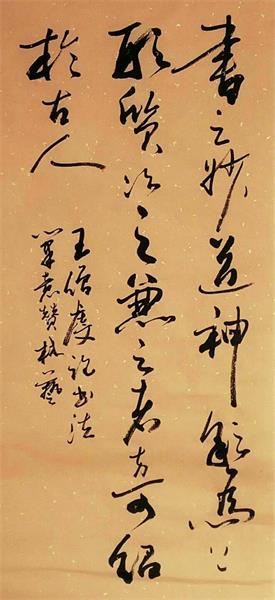 書之妙道神彩為上
形質次之兼之者方可紹
於古人
王僧虔論書法